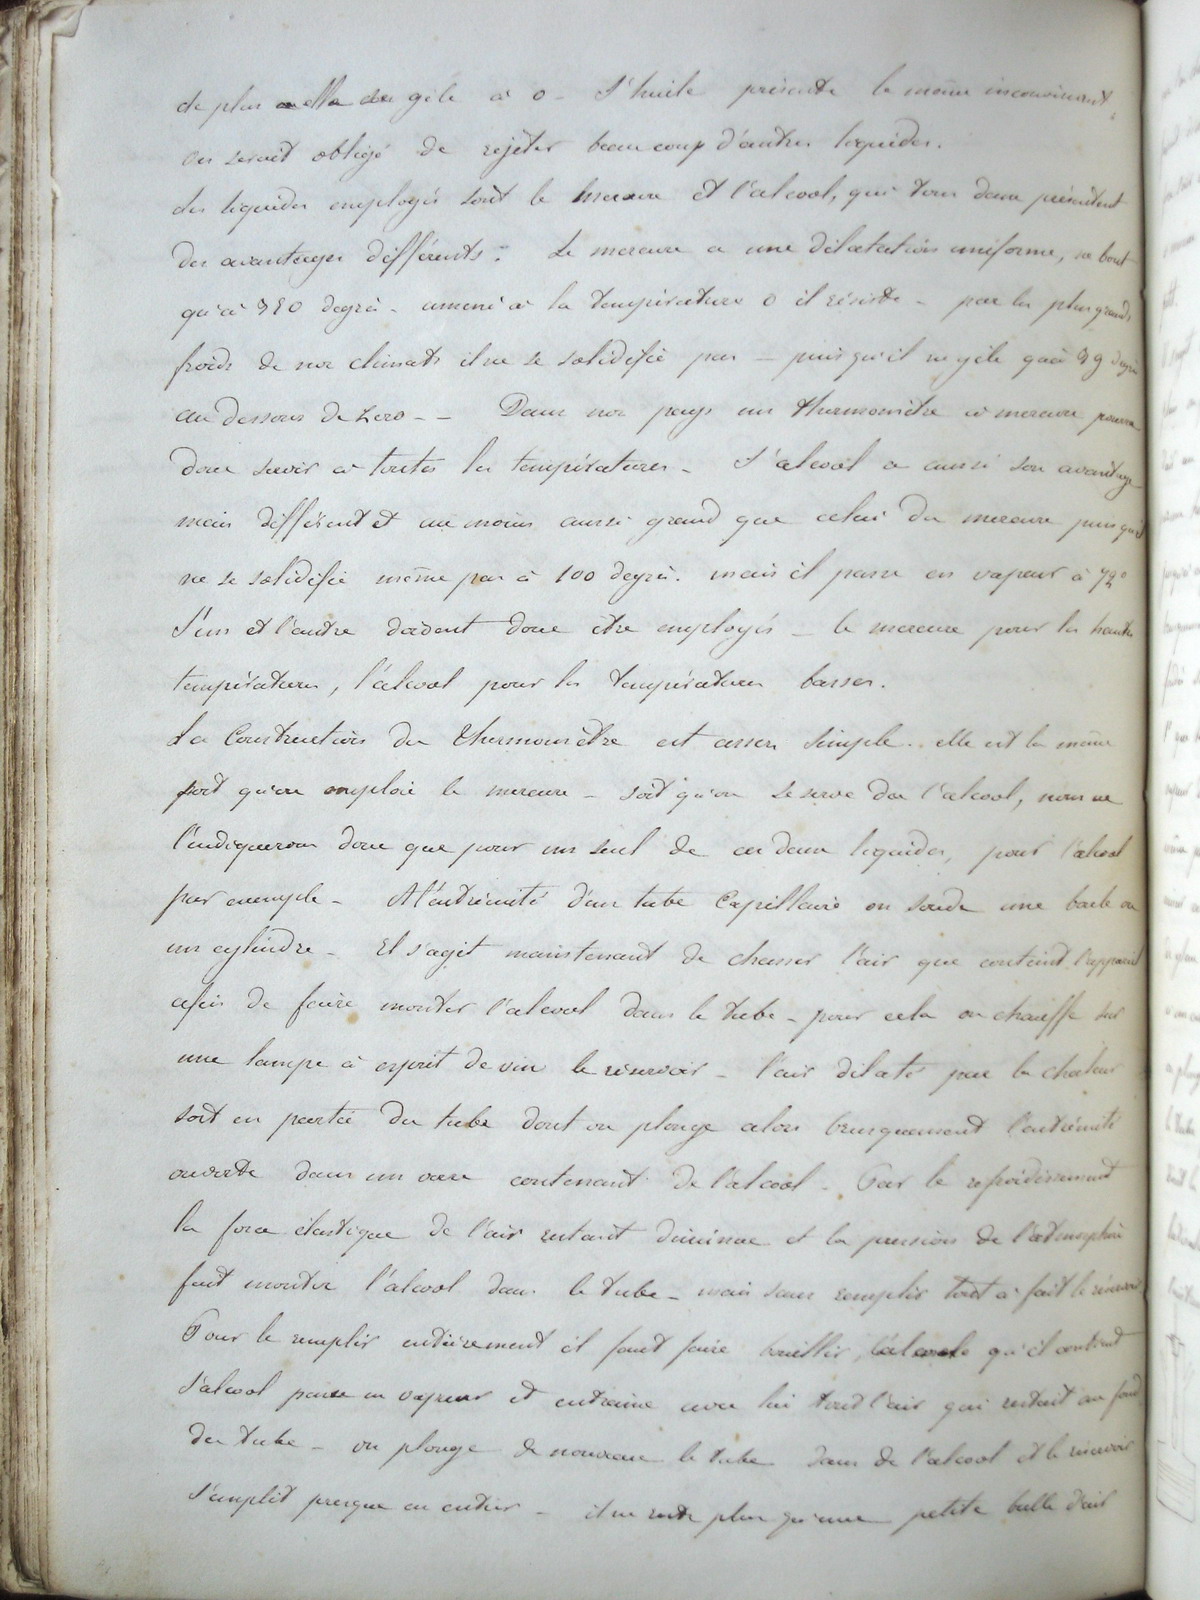 de plus elle se gèle à 0 - L'huile présente le même inconvénient
on serait obligé de rejeter beaucoup d'autres liquides.
Les liquides employés sont le mercure et l'alcool, qui tous deux présentent
des avantages différents : Le mercure a une dilatation uniforme, ne bout
qu'à 350 degrés - amené à la température 0 il résiste - par les plus grands
froids de nos climats il ne se solidifie pas - puisqu'il ne gèle qu'à 39 degrés
au dessous de Zero - - Dans nos pays un thermomètre à mercure pourra
donc servir à toutes les températures - L'alcool a aussi son avantage
mais différent et au moins aussi grand que celui du mercure puisqu'il
ne se solidifie même pas à 100 degrés. mais il passe en vapeur à 72°
L'un et l'autre doivent donc être employés - le mercure pour les hautes
températures, l'alcool pour les températures basses.
La Construction du Thermomètre est assez simple. elle est la même
soit qu'on emploie le mercure - soit qu'on se serve de l'alcool, nous ne
l'indiquerons donc que pour un seul de ces deux liquides, pour l'alcool
par exemple - A l'extrémité d'un tube Capillaire on soude une boule ou
un cylindre - Il s'agit maintenant de chasser l'air que contient l'appareil
afin de faire monter l'alcool dans le tube - pour cela on chauffe sur
une lampe à esprit de vin le réservoir - l'air dilaté par la chaleur
sort en partie du tube dont on plonge alors brusquement l'extrémité
ouverte dans un vase contenant de l'alcool - Par le refroidissement
la force élastique de l'air restant diminue et la pression de l'atmosphère
fait monter l'alcool dans le tube - mais sans remplir tout à fait le réservoir
Pour le remplir entièrement il faut faire bouillir l'alcool qu'il contient
L'alcool passe en vapeur et entraine avec lui tout l'air qui restait au fond
du tube - on plonge de nouveau le tube dans de l'alcool et le réservoir
s'emplit presque en entier - il ne reste plus qu'une petite bulle d'air